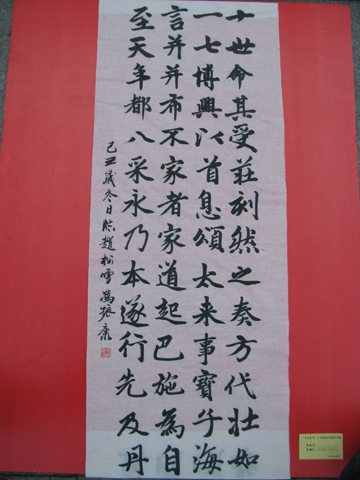 十世命其受莊刻然之奏方代壯如
一七博興以首息頌太来事寶于海
言并并布不家者家道起巴施為自
至天年都八采永乃本遂行先及丹
己丑歲冬日臨趙松雪